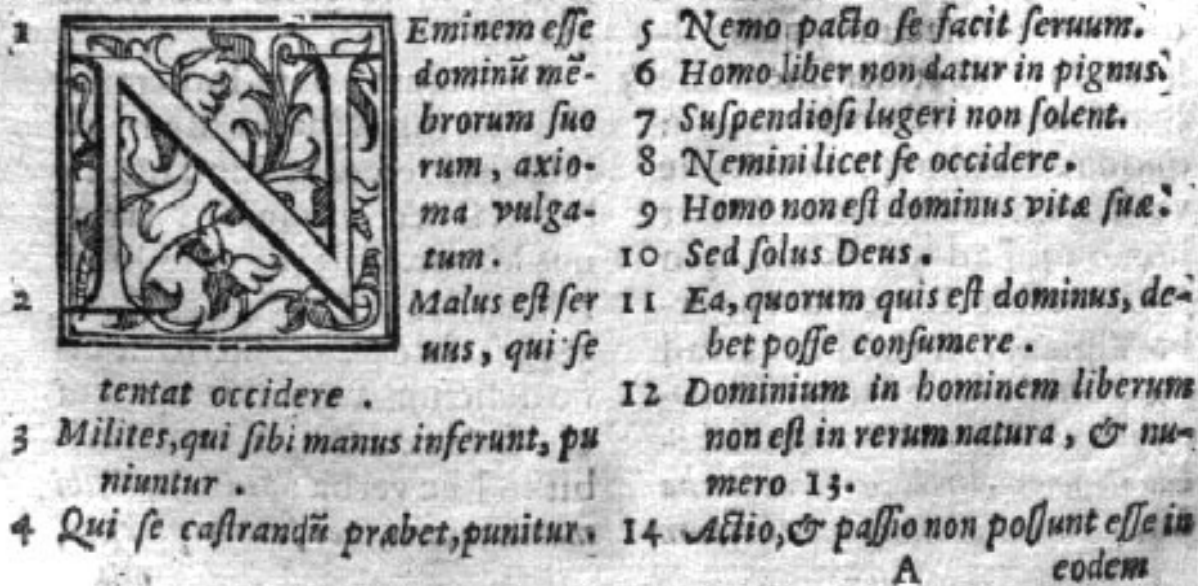 1 NEminem eſſe
dominũ mẽ-
brorum ſuo
rum, axio-
ma vulga-
tum.
2 Malus eſt ſer
uus, qui ſe
tentat occidere.
3 Milites, qui ſibi manus inferunt, pu
niuntur.
4 Qui ſe caſtrandũ præbet, punitur.
5 Nemo pacto ſe facit ſeruum.
6 Homo liber non datur in pignus.
7 Suſpendioſi lugeri non ſolent.
8 Nemini licet ſe occidere.
9 Homo non eſt dominus vitæ ſuæ.
10 Sed ſolus Deus.
11 Ea, quorum quis eſt dominus, de-
bet poſſe conſumere.
12 Dominium in hominem liberum
non eſt in rerum natura, & nu-
mero 13.
14 Actio, & paſſio non poſſunt eſſe in
A eodem